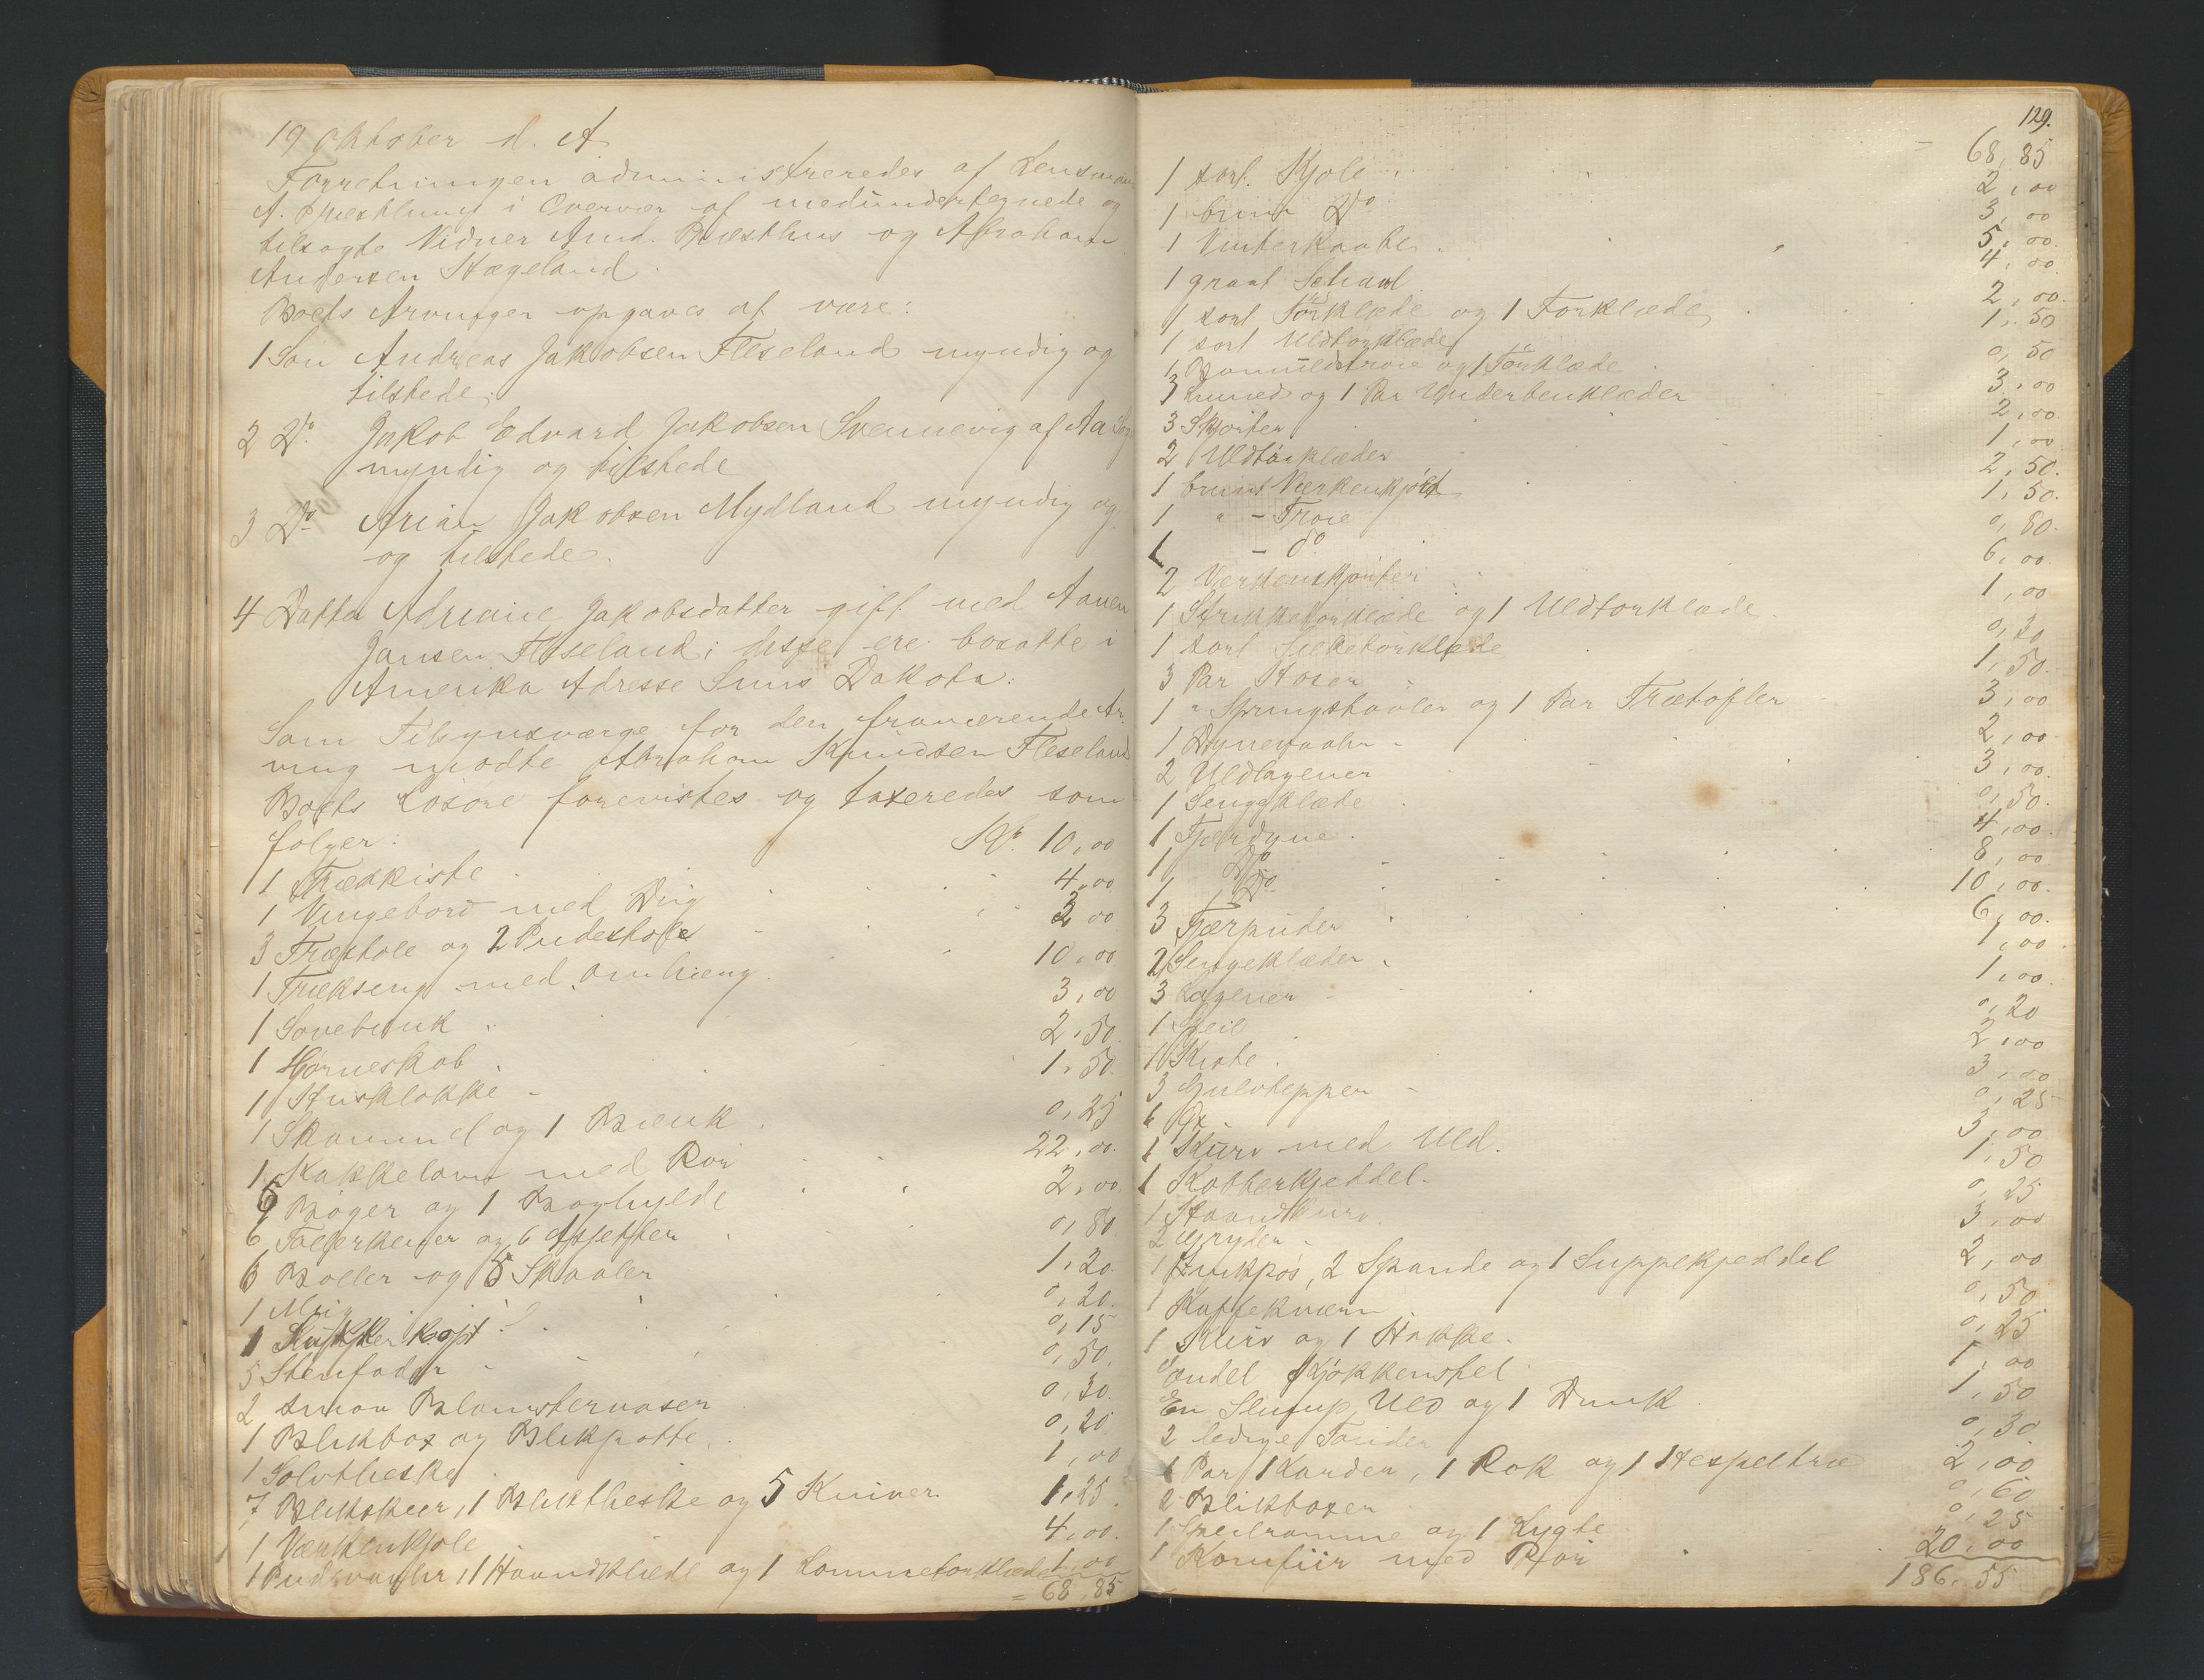 19 Oktober d. A
Forretningen administreredes af Lensman
A. i Overvær af medundertegnede og
tilsagte Vidner And. Bræsthus og Abraham
Andersen Hægeland.
Boets Arvinger opgaves at være:
1 Søn Andreas Jakobsen Fleseland myndig og
tilstede.
2 Do Jakob Edvard Jakobsen Svennevig af Aa Sogn
myndig og tilstede
3 Do Arian Jakobsen Mydland myndig og
og tilstede.
4 Datter Adriane Jakobsdatter gift med Aanen
Jansen Fleseland; disse ere bosatte i
Amerika Adresse Dakota:
Som Tilsynsværge for den fraværende Ar-
ving mødte Abraham Knudsen Fleseland
Boets Løsøre forevistes og taxeredes som
følger:
1 Trækkiste Kr. 10,00
1 Vingebord med Dug 4,00
3 Træstole og 2 Pudestole 3,00
1 Trækseng med Omhæng 10,00
1 Sovebænk 3,00
1 Hjørneskab 2,50
1 Stueklokke 1,50
1 Skammel og 1 Bænk 0,25
1 Kakkelovn med Rør 22,00
6 Bøger og 1 Boghylde 2,00
6 Tallerkener og 6 Assjetter 0,80
6 Boller og 5 Skaaler 1,20
1 Mug 0,20
1 Sukkerkopt 0,15
5 Stenfader 0,50
2 smaa Blomstervaser 0,30
1 Blikbox og Blikpotte 0,20
1 Sølvtheske 1,00
7 Blikskeer, 1 Bliktheske og 5 Kniver 1,25
1 Værkenkjole 4,00
1 Pudevaahr, 1 Haandklæde og 1 Lommetørklæde 1,00
= 68,85
129.
68,85
1 sort Kjole 2,00
1 brun Do 3,00
1 Vinterkaabe 5,00
1 graat Schavl 4,00
1 sort Tørklæde og 1 Forklæde 2,00
1 sort Uldtørklæde 1,50
1 Bomuldstrøie og 1 Tørklæde 0,50
3 Linned og 1 Par Underbenklæder 3,00
3 Skjorter 2,00
2 Uldtørklæder 1,00
1 brunt Værkenskjørt 2,50
1 " - Trøie 1,50
1 - do 0,80
2 Værkenskjorter 6,00
1 Strikketørklæde og 1 Uldtørklæde 1,00
1 sort Silketørklæde 0,30
3 Par Hoser 1,50
1 " Springstøvler og 1 Par Trætøfler 3,00
1 Dynevaahr 2,00
2 Uldlagener 3,00
1 Sengeklæde 0,50
1 Fjerdyne 4,00
1 Do 8,00
1 Do 10,00
3 Fjærpuder 6,00
2 Sengeklæder 1,00
3 Lagener 1,00
1 Speil 0,20
1 Kiste 2,00
3 Gulvtepper 3,00
1 Øx 0,25
1 Kurv med Uld 3,00
1 Kobberkjeddel 1,50
1 Haandkurv 0,25
2 Gryder 3,00
1 Zinkpøs, 2 Spande og 1 Suppekjeddel 2,00
1 Kaffekværn 0,50
1 Kurv og 1 Hakke 0,25
Endel Kjøkkenstel 1,00
En Slump Ved og 1 Dunk 1,50
2 ledige Tønder 0,30
1 Par Karder, 1 Rok og 1 Hespeltræ 2,00
2 Blikboxer 0,60
1 Speilramme og 1 Lygte 0,25
1 Komfür med Rør 20,00
186,55